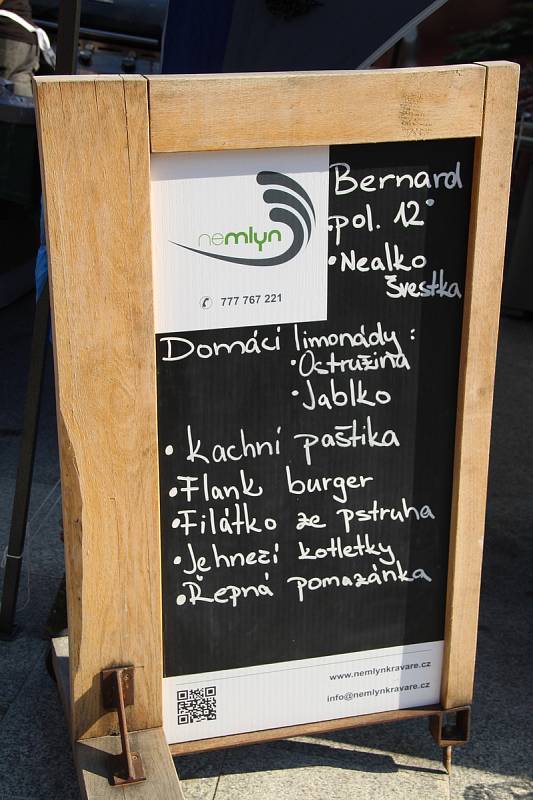 nemlyn
777 767 221
Bernard
pol. 12°
• Nealko
Švestka
Domácí limonády:
• Ostružina
• Jablko
• Kachní paštika
• Flank burger
• Filátko ze pstruha
• Jehnečí kotletky
• Řepná pomazánka
www.nemlynkravare.cz
info@nemlynkravare.cz